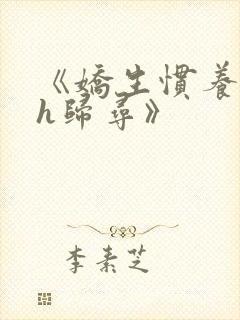 《嬌生慣養
h歸尋》
李素芝